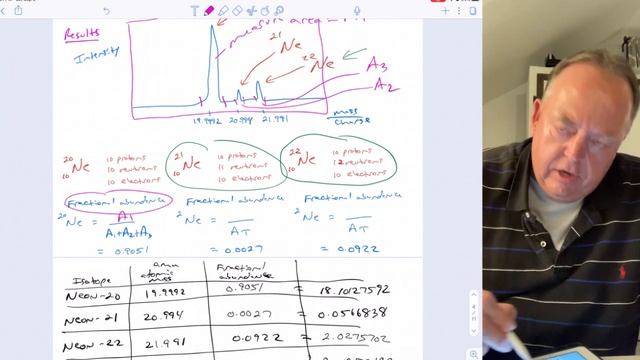 Results
measure area =
Intensity
21
Ne
22
Ne
A3
A2
19.9992 20.994 21.991
mass
charge
20
10 Ne 10 protons
10 neutrons
10 electrons
21
10 Ne 10 protons
11 neutrons
10 electrons
22
10 Ne 10 protons
12 neutrons
10 electrons
Fractional abundance Fractional abundance Fractional abundance
20 Ne = A1 / A1+A2+A3
2 Ne = / AT
2 Ne = / AT
= 0.9051 = 0.0027 = 0.0922
Isotope amu atomic mass Fractional abundance
Neon-20 19.9992 0.9051 = 18.1027592
Neon-21 20.994 0.0027 = 0.0566838
Neon-22 21.991 0.0922 = 2.0275702